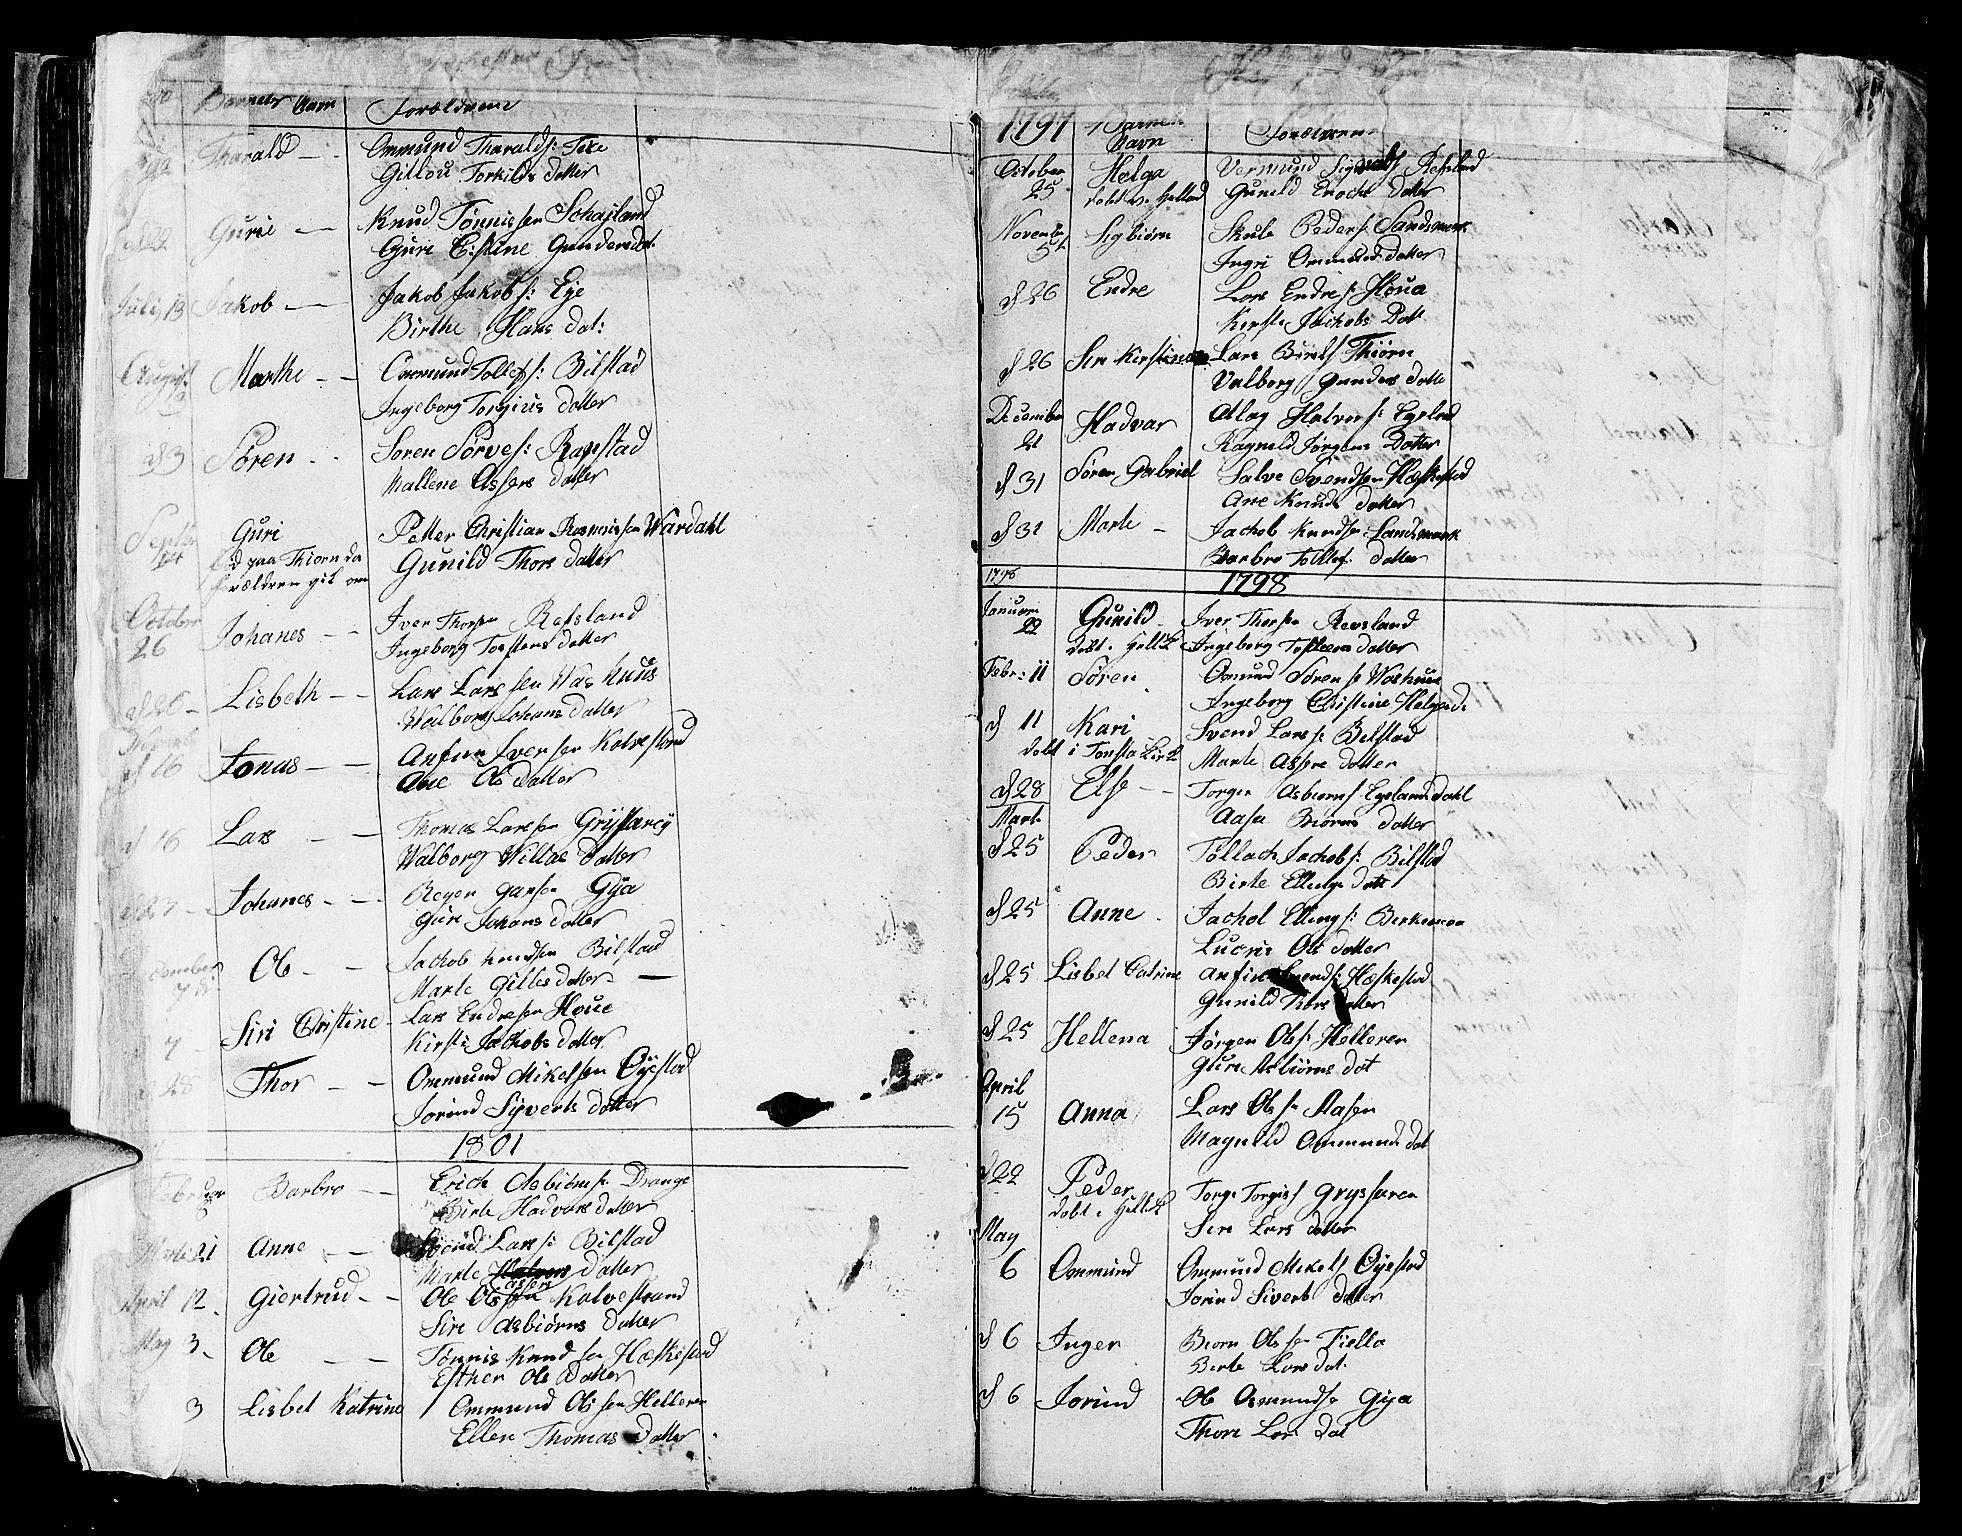 Barnets Navn Forældrene
Tharald — Ommund Tharalds:
Gitlou Torkilds Datter
d 29 Guri — Knud Tønnissen
Guri Cistine Gunders dat:
Juli 13 Jakob — Jakob Jakobs: Eye
Birthe Hans dat:
August 3 Marthe — Ommund Tollefs: Bilstad
Ingeborg Torgius datter
d 3 Søren - - Soren Sørves: Rapstad
Mallene Assers datter
Guri Petter Christian Rasmussen Wardahl
fød paa Thiorn da Gunild Thors datter
forældren gik om
October 26 Johanes — Iver Thorsen Refsland
Ingeborg Torstens datter
d 26 Lisbeth — Lars Larssen Was huus
Walborg Johans datter
d 16 Jonas — Anfin Iversen Kolvestrand
Ane Ols Datter
d 16 Lars — Thomas Larssen Gryssarey
Walborg Willas datter
Johanes — Reyer Gya
Guri Johans datter
7 d Ole — Jachob Knudsen Bilstad
Marte Gitles datter —
7 Siri Cristine Lars Endresen Houe
Kirsti Jachobs datter
28 Thor — Ommund Mikelsen Øyestad
Jorind Syverts datter
1801
Februar Barbro — Erich Asbiørns: Drange
Birte Hadvars datter
Marti 21 Anne — Svend Lars: Bilstad
Marte Assers Datter
April 12 Giertrud — Ole Olssen Kolvestrand
Siri Asbiørns Datter
May 3 Ole — Tønnis Knudsen Hæskestad
Esther Ols Datter
3 Lisbet Katrine Ommund Olssen Helleren
Ellen Thomas Datter
1797 Barnets Navn Forældrene
October 25 Helga Vermund Sigvalds Refsland
døbt v. Helland Gunild Enochs datter
Novemb 5t Sigbiørn Skule Peders: Sandsmark
Ingri Ommunds datter
d 26 Endre Lars Endres: Houa
Kirsti Jachobs Datt
d 26 Siri Kirstina Lars Thiørn
Valborg Gunders datte
December 21 Hadvar Atlag Halvors: Egeland
Ragnild Jørgens Datter
d 31 Søren Gabriel Salve Svendsen Hæskestad
Ane Knuds datter
d 31 Marte — Jachob Knudsen Sandsmark
Barbro Tollef: datter
1798 1798
Januari 22 Gunild Iver Thorsen Revsland
døbt i Ingeborg Tostens datter
Febr: 11 Søren Omund Sørens: Washuus
Ingeborg Christine Helgæds
d 11 Kari Svend Lars: Bilstad
døbt i Tonsta Kirk Marte Assers datter
d 28 Else — Torger Asbiørns: Egelands dahl
Marti Aasa Biørns datter
d 25 Peder Tollach Jachobs: Bilstad
Birte Ellings datt
d 25 Anne Jachob Ellings: Birkemoe
Lucris Ols datter
d 25 Lisbet Catrine Anfin Svends: Hæskestad
Gunild Thors datter
d 25 Hellena Jørgen Ols: Helleren
Guri Asbiørns dat
April 15 Anna Lars Olsen Aasen
Magnild Ommunds dat
d 22 Peder Torge Torgis: Gryssaren
døbt i Siri Lars datter
May 6 Ommund Ommund Mikels Øyestad
Jorind Siverts Datter
d 6 Inger Biørn Olssen Fiella
Birte Lars dat.
d 6 Jorind Ole Osmunds: Gya
Thore Lars Dat